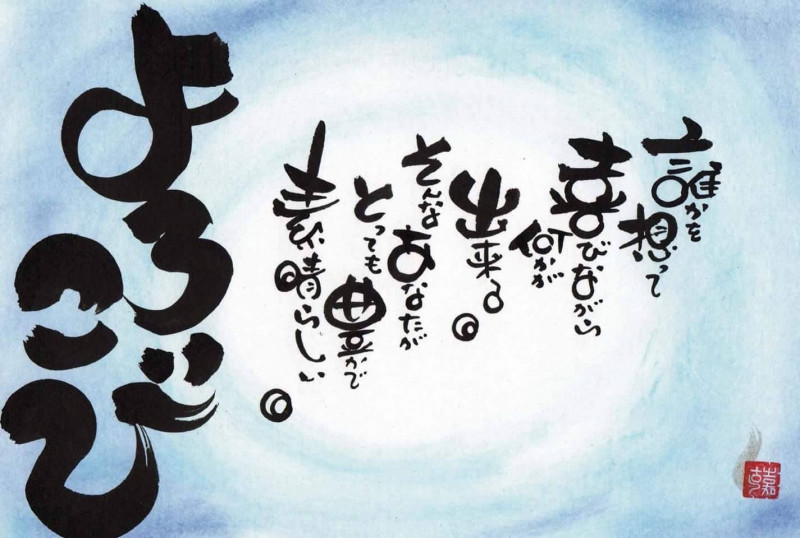 よろこび
誰かを想って
喜びながら
何かが
出来る。
そんな
あなたが
とっても
豊かで
素晴らしい。